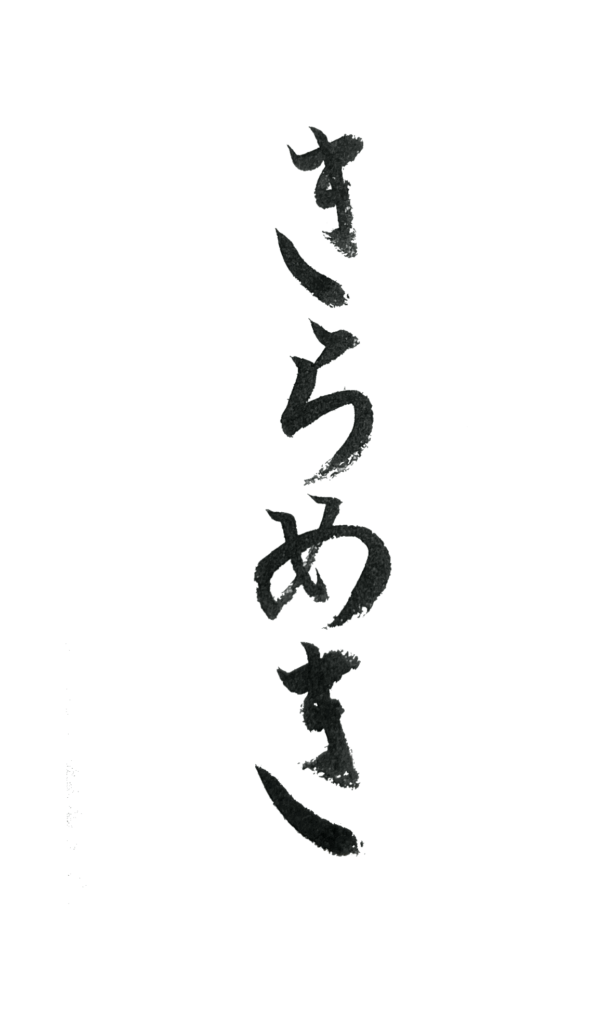 きらめき